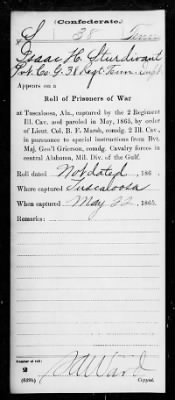 (Confederate.)
S 38 Tenn
Isaac H. Sturdivant
Pvt. Co. G, 38 Regt. Tenn.
Appears on a
Roll of Prisoners of War
at Tuscaloosa, Ala., captured by the 2 Regiment
Ill. Cav. and paroled in May, 1865, by order
of Lieut. Col. B. F. Marsh, comdg. 2 Ill. Cav.,
in pursuance to special instructions from Bvt.
Maj. Gen'l Grierson, comdg. Cavalry forces in
central Alabama, Mil. Div. of the Gulf.
Roll dated Not dated, 186 .
Where captured Tuscaloosa
When captured May 22, 1865.
Remarks:
Number of roll:
2
Ward
Copyist.